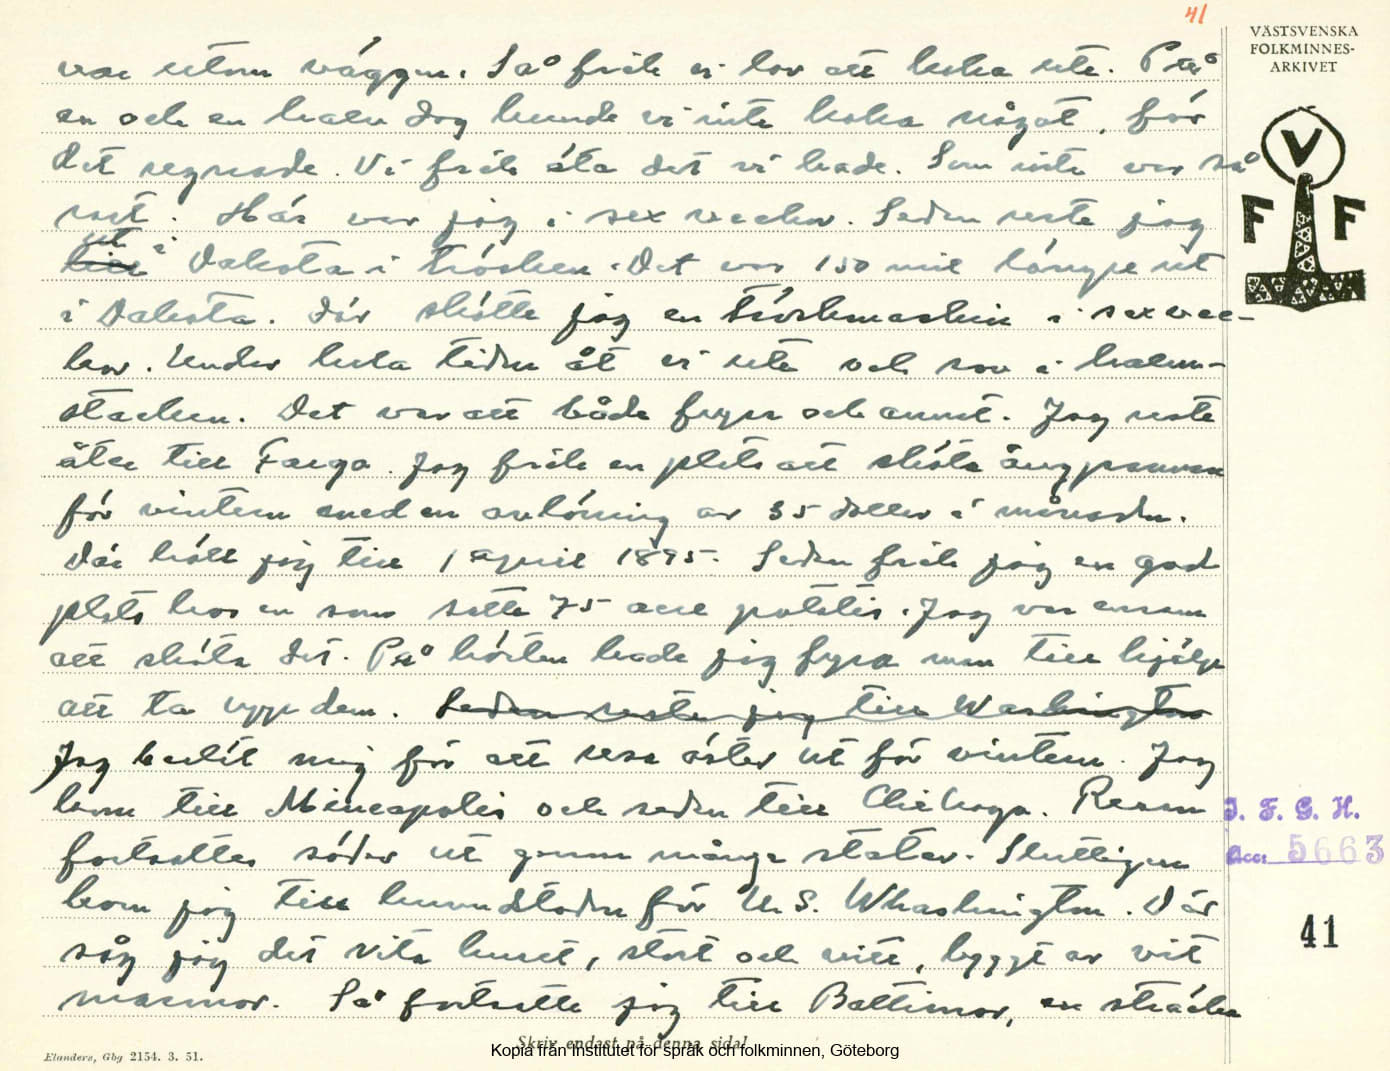 41
VÄSTSVENSKA
FOLKMINNES-
ARKIVET
V
F F
var utom väggen. Så fick vi lov att koka ute. På
en och en halv dag kunde vi inte koka något, för
det regnade. Vi fick äta det vi hade. Som inte var så
rart. Här var jag i sex veckor. Sedan reste jag
ut i
till Dakota i trösken. Det var 150 mil längre ut
i Dakota. Där skötte jag en tröskmaskin i sex vec-
kor. Under hela tiden åt vi ute och sov i halm-
stacken. Det var att både frysa och annat. Jag reste
åter till Fargo. Jag fick en plats att sköta ångpannan
för vintern med en avlöning av 35 dollar i månaden.
Där höll jag till 1 april 1895. Sedan fick jag en god
plats hos en som satte 75 acre potatis. Jag var ensam
att sköta det. På hösten hade jag fyra man till hjälp
att ta upp dem. Sedan reste jag till Washington
Jag beslöt mig för att resa öster ut för vintern. Jag
kom till Mineapolis och sedan till Chikago. Resan
fortsattes söder ut genom många stater. Slutligen
kom jag till huvudstaden för U.S. Whashington. Där
såg jag det vita huset, stort och vitt, byggt av vit
marmor. Så fortsatte jag till Baltimor, en sträcka
I. F. G. H.
Acc: 5663
41
Skriv endast på denna sida!
Kopia från Institutet för språk och folkminnen, Göteborg
Elanders, Gbg 2154. 3. 51.